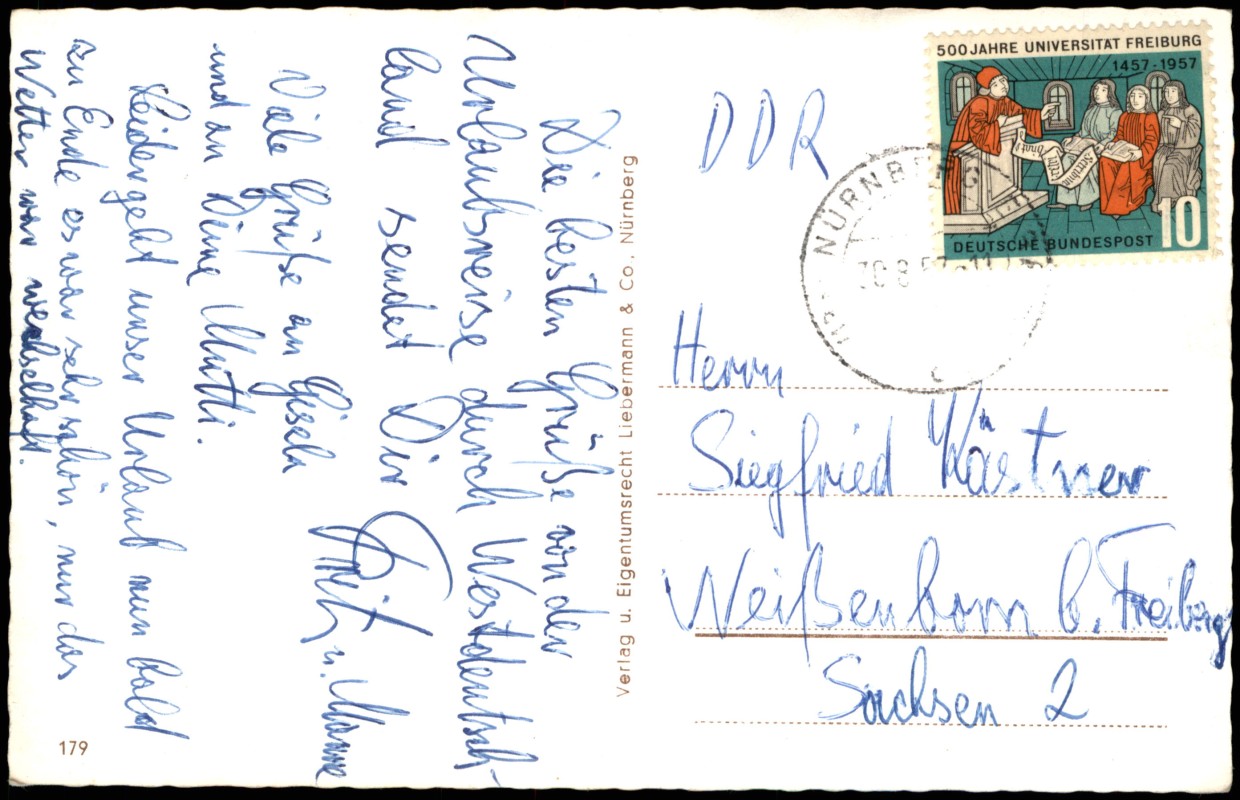 Die besten Grüße von der
Urlaubsreise durch Westdeutsch-
land sendet Dir
Viele Grüße an Gisela
und an Deine Mutti.
u. Manne
Leider geht unser Urlaub nun bald
zu Ende es war sehr schön, nur das
Wetter war wechselhaft.
179
Verlag u. Eigentumsrecht Liebermann & Co., Nürnberg
DDR
500 JAHRE UNIVERSITÄT FREIBURG
1457-1957
DEUTSCHE BUNDESPOST 10
NÜRNBERG
30.8.57-11
Herrn
Siegfried Kästner
Weißenborn b. Freiberg
Sachsen 2